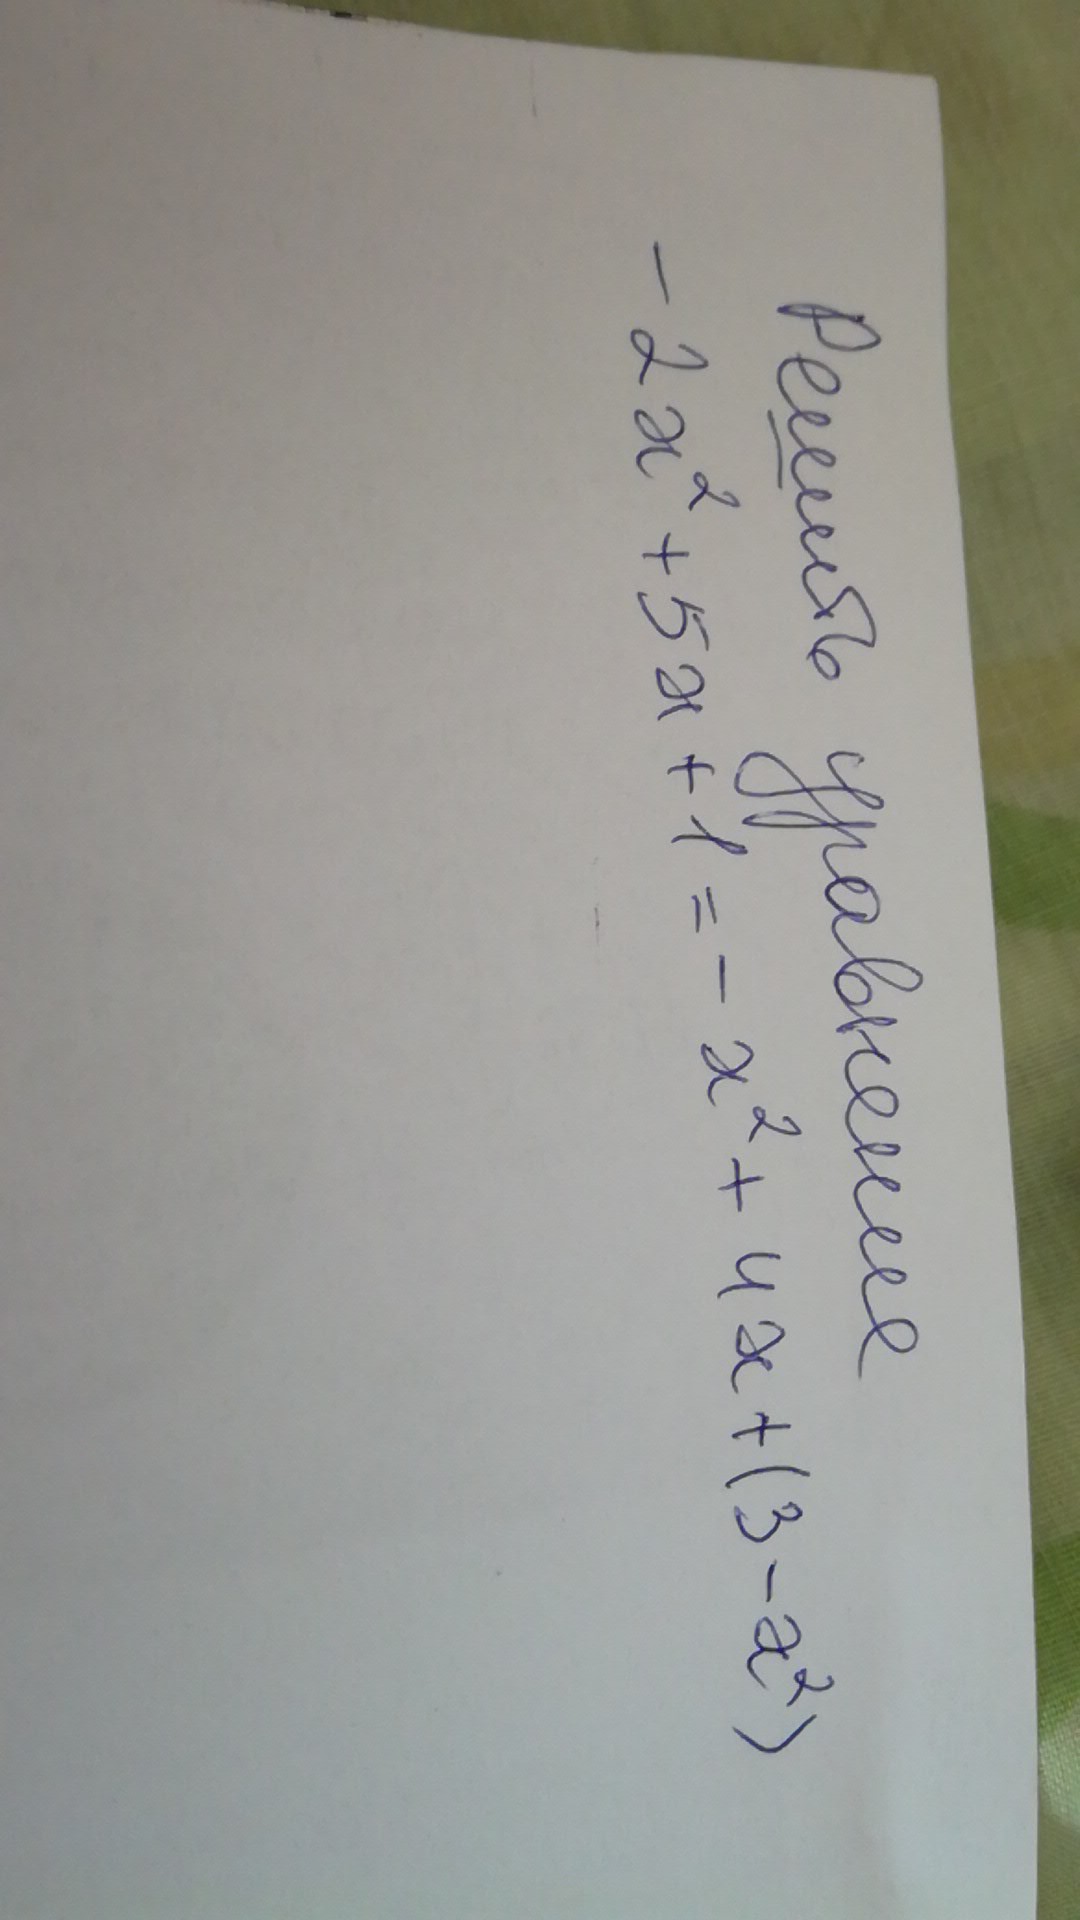 Решить уравнение
-2x²+5x+1=-x²+4x+(3-x²)